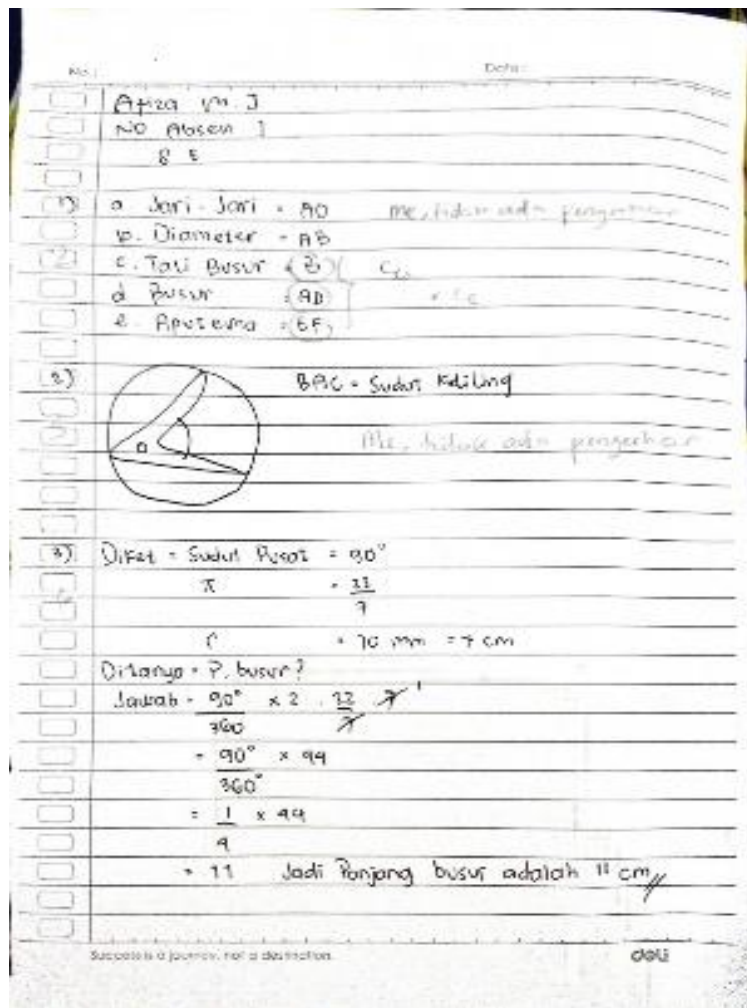 No :
Date :
Afiza M. J
No Absen 1
8 E
1) a Jari-Jari = AO Me, tidak ada pengerhar
b. Diameter = AB
c. Tali Busur
d Busur = AD
e. Apotema = EF
2) BAC = Sudut Keliling
Me, tidak ada pengerhar
3) Diket = Sudut Pusat = 90°
π = 22
7
r = 70 mm = 7 cm
Ditanya = P. busur?
Jawab = 90° x 2 . 22 . 7 1
360 7
= 90° x 44
360°
= 1 x 44
4
= 11 Jadi Panjang busur adalah 11 cm //
Success is a journey, not a destination.
deli